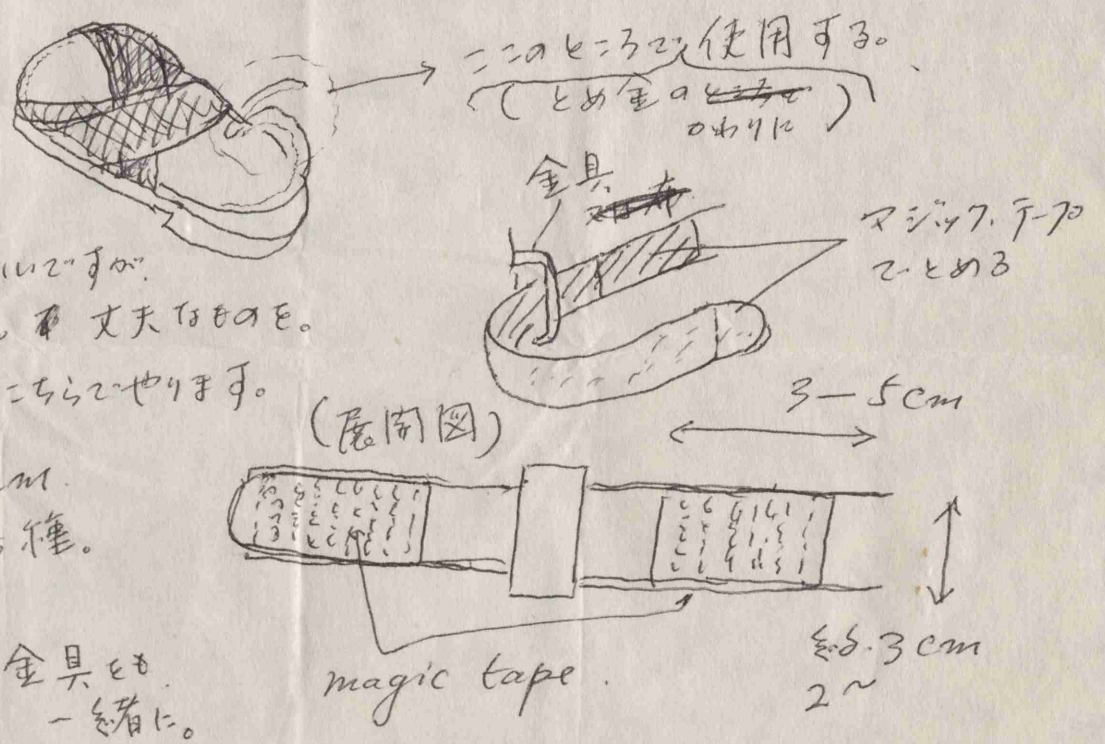 ここのところで使用する。
(とめ金の
かわりに)
金具
マジックテープ
でとめる
いいですが、
丈夫なものを。
こちらでやります。
3−5cm
(展開図)
m.
種。
金具とも
一緒に。
magic tape.
約.3cm
2〜